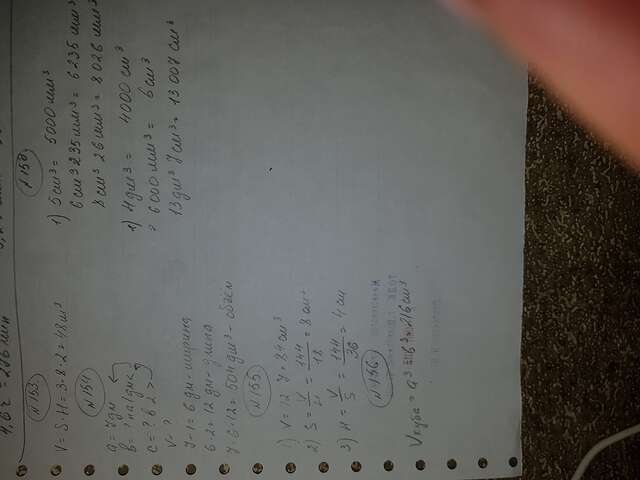 №153
V = S·H = 3·8·2 = 48 см³
№154
a = 7дм
b = ? на 1 дм <
c = ? в 2 >
V - ?
7-1 = 6 дм - ширина
6·2 = 12 дм - длина
7·6·12 = 504 дм³ - объём
№155
1) V = 12·7 = 84 см³
2) S = V/H = 144/18 = 8 см²
3) H = V/S = 144/36 = 4 см
№156
Vкуба = a³ = 6³ = 216 см³
1) 5 см³ = 5000 мм³
6 см³ 235 мм³ = 6235 мм³
8 см³ 26 мм³ = 8026 мм³
2) 4 дм³ = 4000 см³
6000 мм³ = 6 см³
13 дм³ 7 см³ = 13007 см³